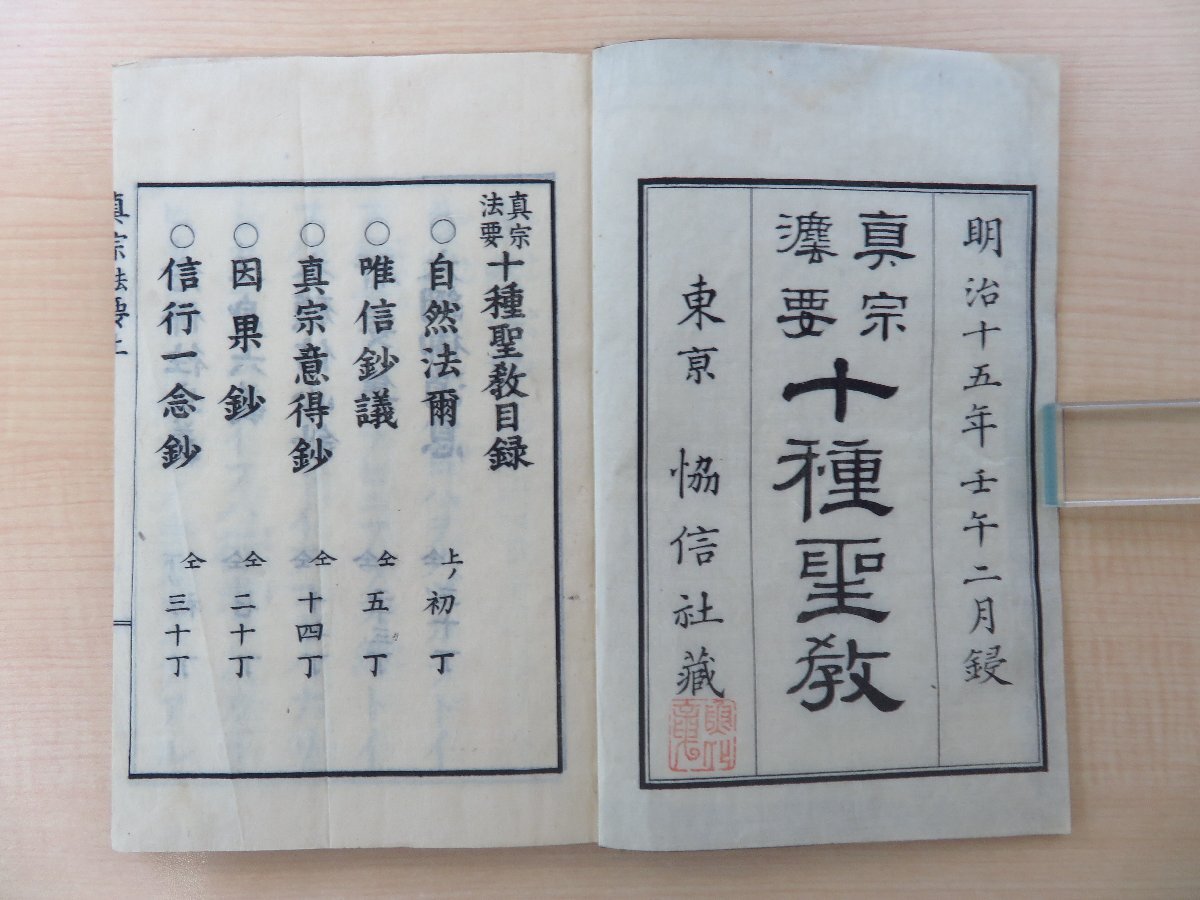 明治十五年壬午二月鋟
真宗
灋要
十種聖教
東京 恊信社藏
真宗
法要
十種聖教目録
○自然法爾 上ノ初丁
○唯信鈔議 仝五丁
○真宗意得鈔 仝十四丁
○因果鈔 仝二十丁
○信行一念鈔 仝三十丁
真宗法要